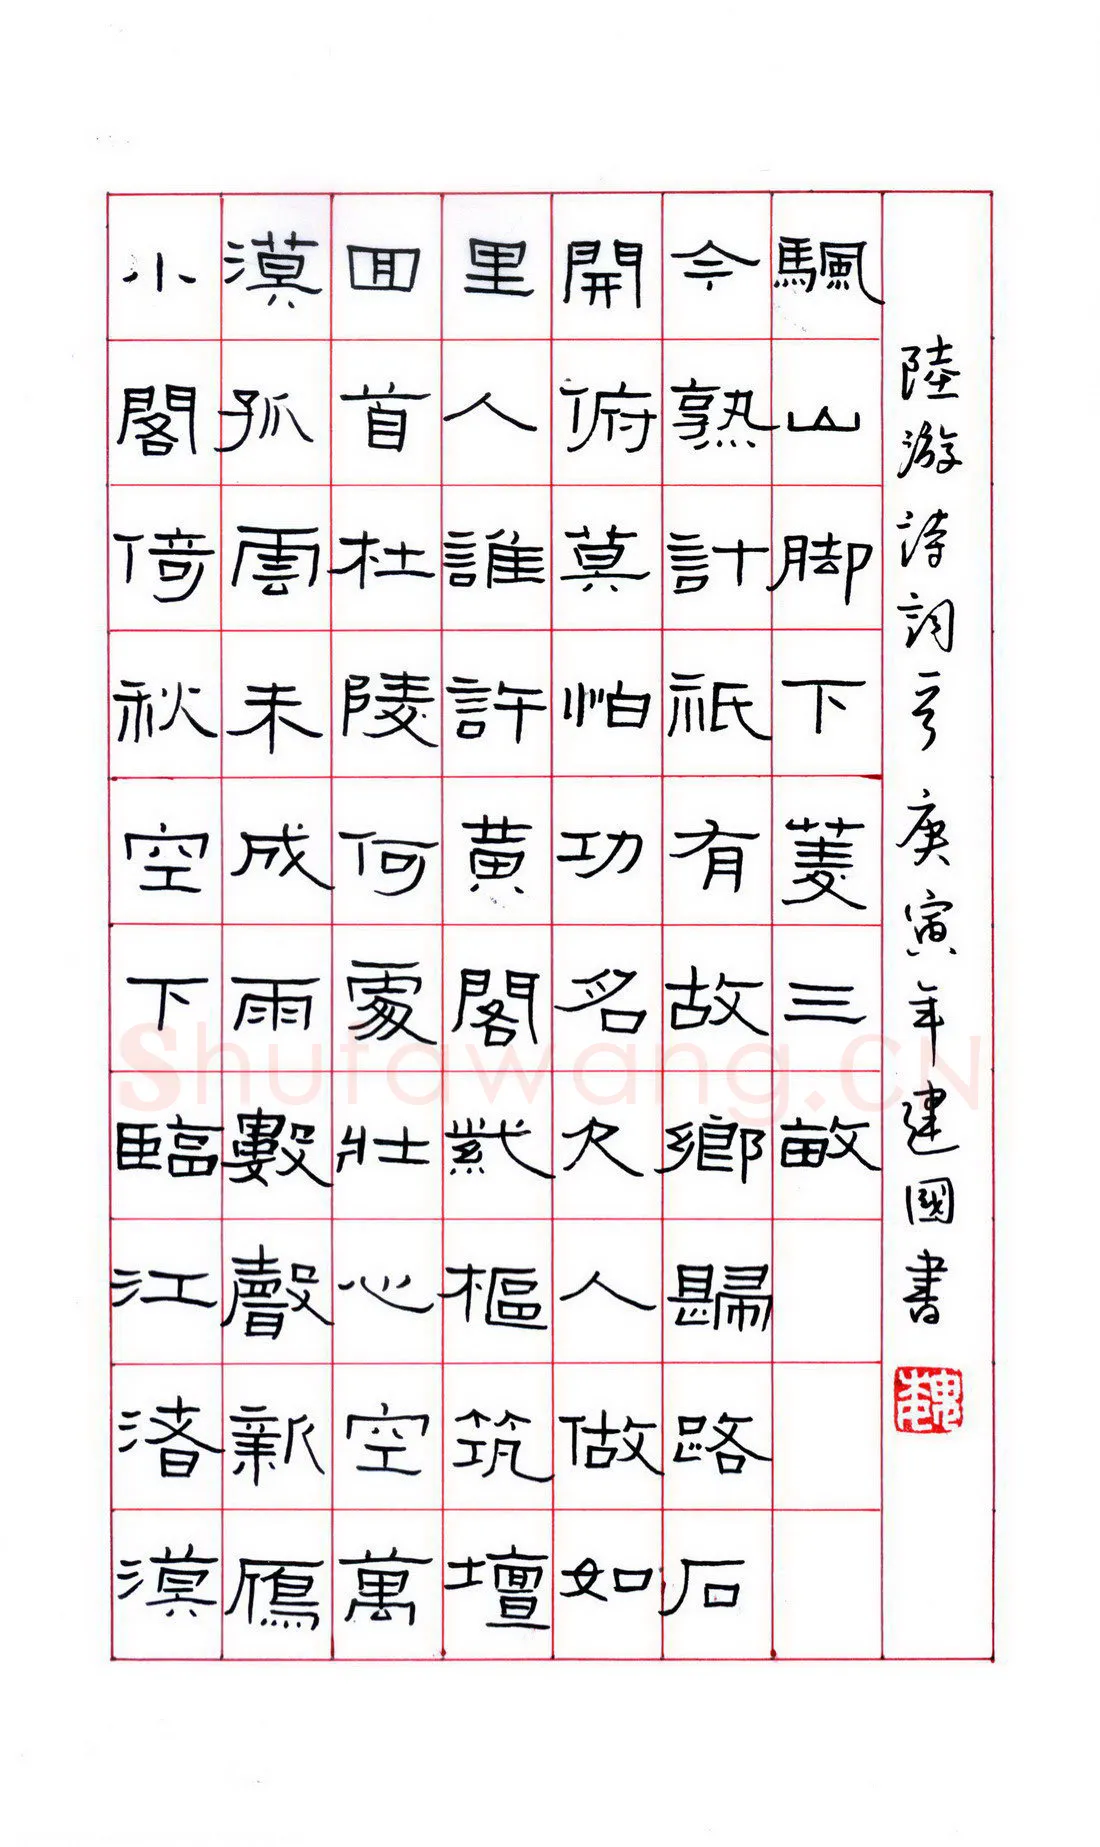 小閣倚秋空下臨江渚漠
漠孤雲未成雨數聲新鴈
囬首杜陵何處壯心空萬
里人誰許黃閣紫樞筑壇
開俯莫怕功名欠人做如
今熟計祇有故鄉歸路石
颿山脚下菱三畝
陸游詩詞一首庚寅年建國書
魏
Shufawang.CN